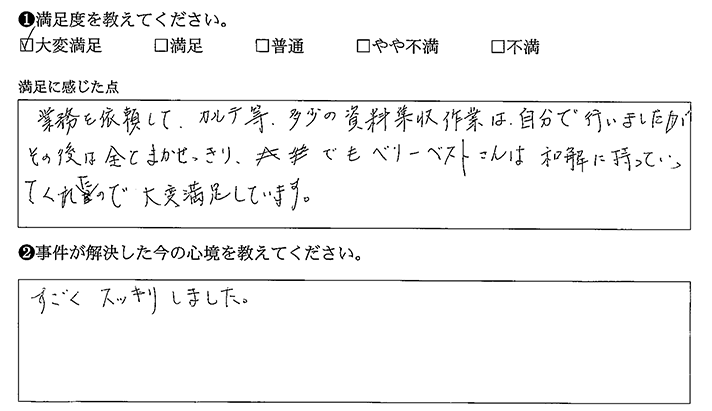 ❶満足度を教えてください。
☑大変満足 □満足 □普通 □やや不満 □不満
満足に感じた点
業務を依頼して、カルテ等、多少の資料集収作業は、自分で行いましたが
その後は全てまかせっきり、でもベリーベストさんは 和解に持っていっ
てくれたので 大変満足しています。
❷事件が解決した今の心境を教えてください。
すごく スッキリ しました。